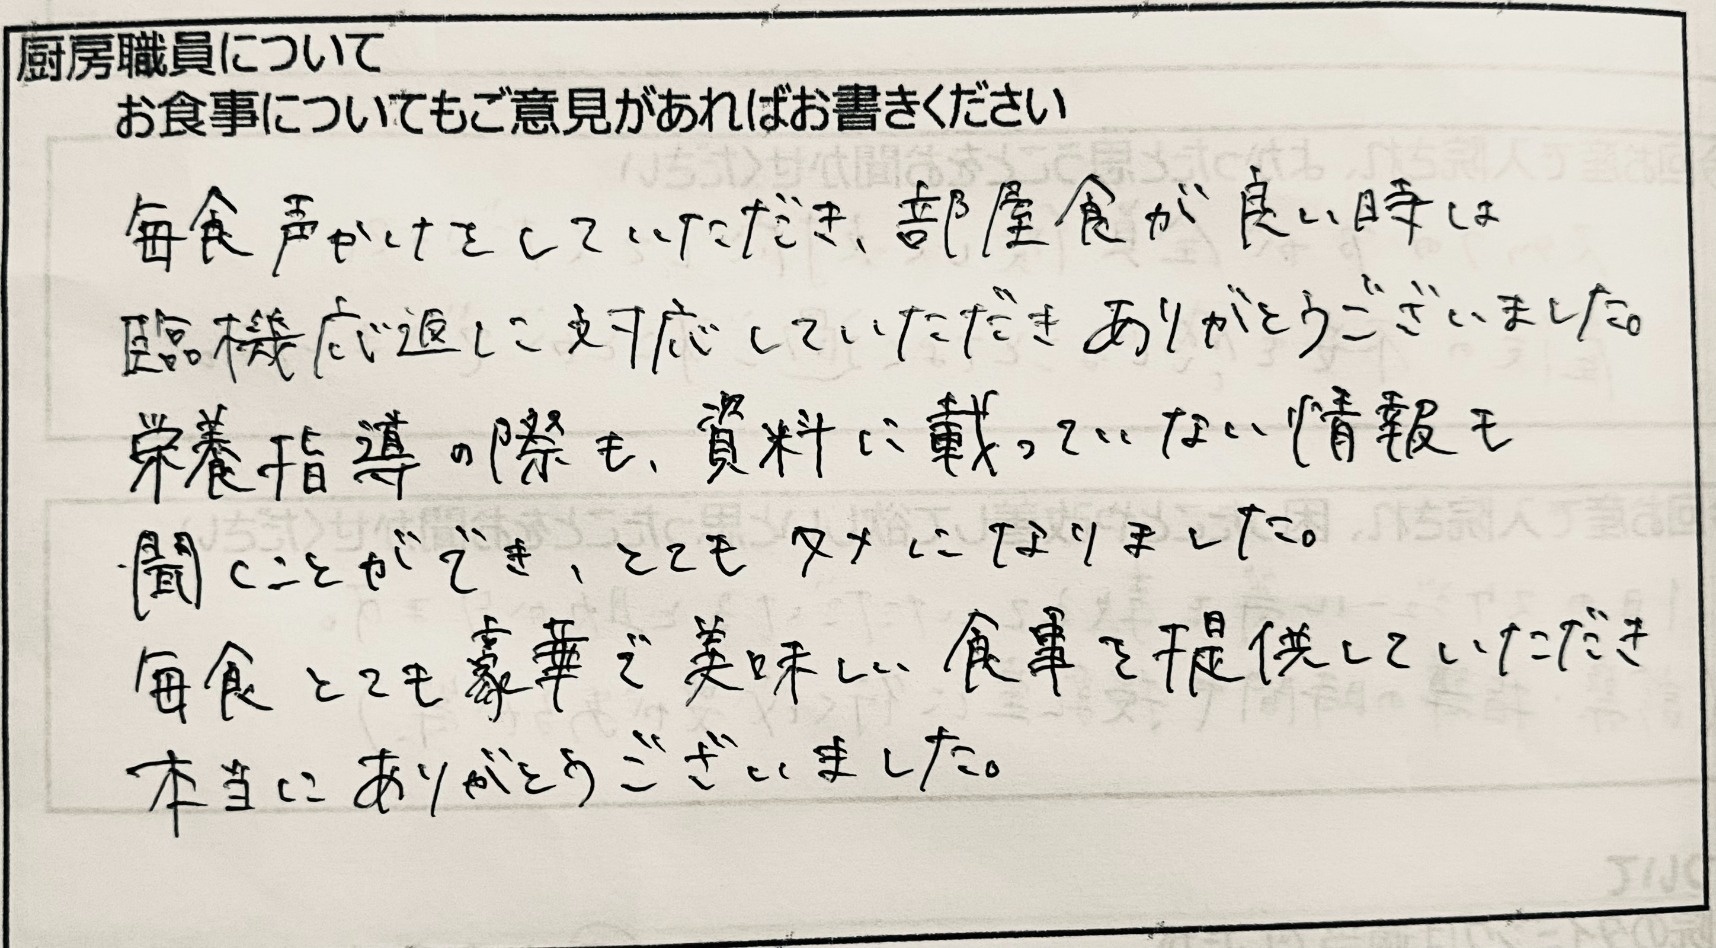 厨房職員について
お食事についてもご意見があればお書きください
毎食声かけをしていただき、部屋食が良い時は
臨機応返しに対応していただきありがとうございました。
栄養指導の際も、資料に載っていない情報も
聞くことができ、とてもタメになりました。
毎食とても豪華で美味しい食事を提供していただき
本当にありがとうございました。